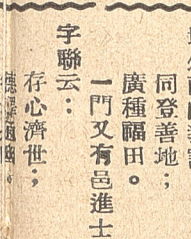 同登善地；
廣種福田。
一門又有邑進士
字聯云：
存心濟世；